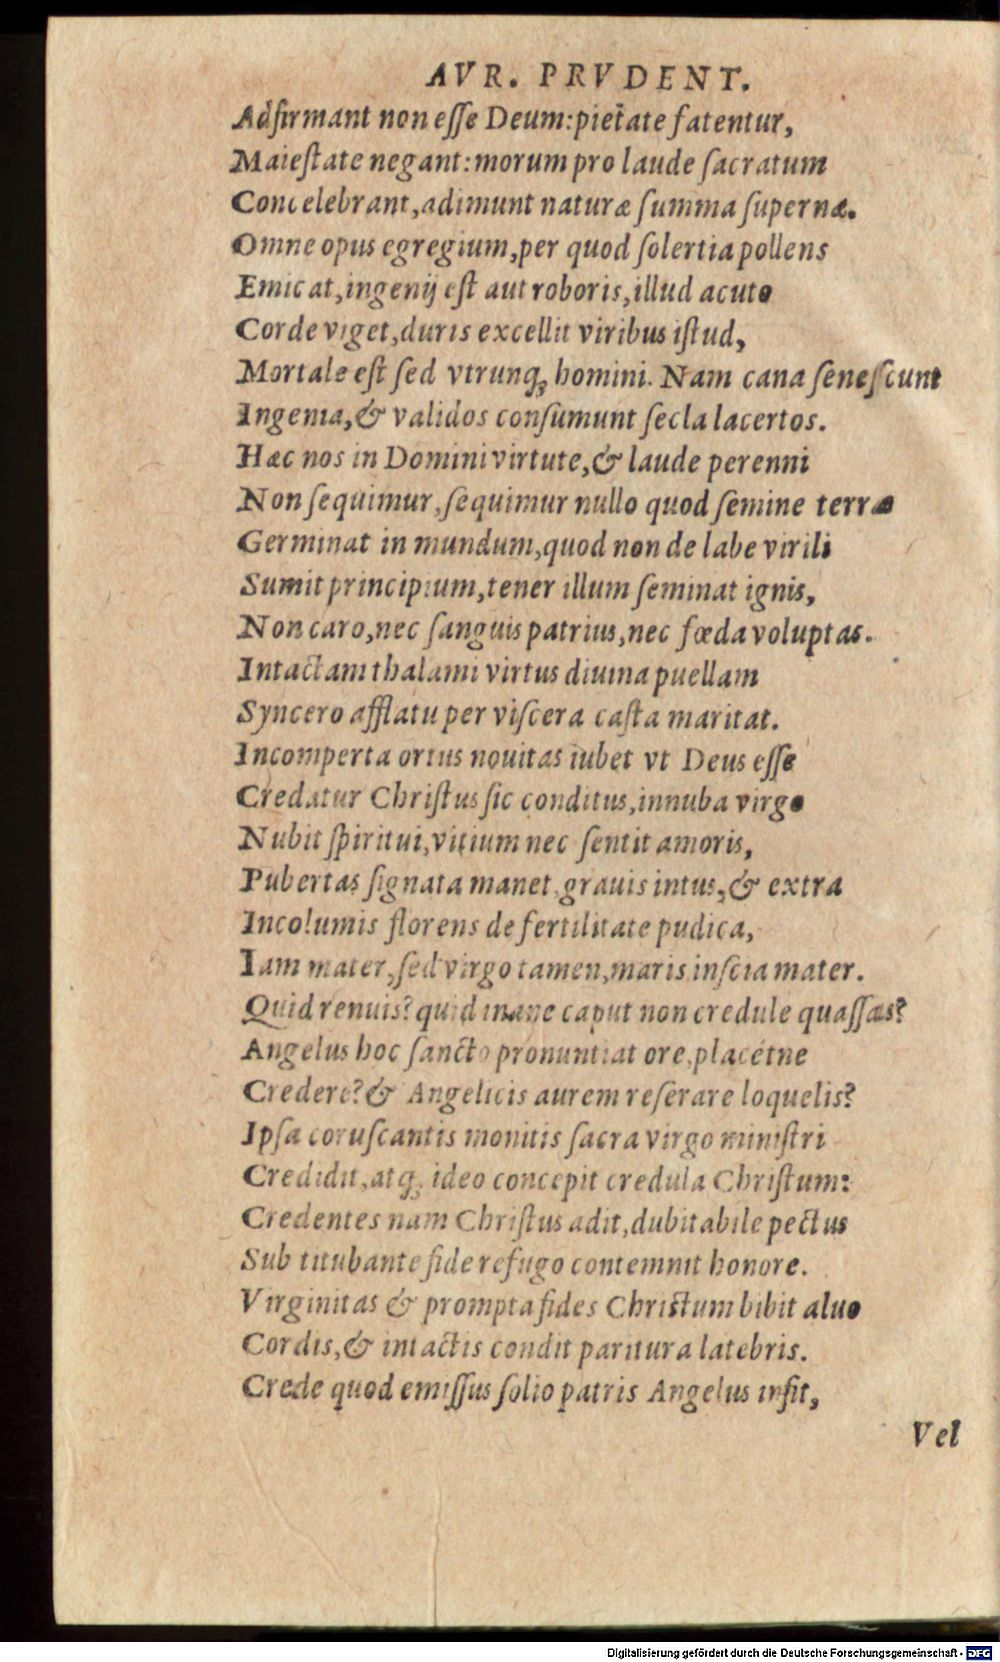 AVR. PRVDENT.
Adſirmant non eſſe Deum:pietate fatentur,
Maieſtate negant:morum pro laude ſacratum
Concelebrant,adimunt naturæ ſumma ſupernæ.
Omne opus egregium,per quod ſolertia pollens
Emicat,ingenij eſt aut roboris,illud acuto
Corde viget,duris excellit viribus iſtud,
Mortale eſt ſed vtrunq; homini. Nam cana ſeneſcunt
Ingenia,& validos conſumunt ſecla lacertos.
Hæc nos in Domini virtute,& laude perenni
Non ſequimur,ſequimur nullo quod ſemine terræ
Germinat in mundum,quod non de labe virili
Sumit principium,tener illum ſeminat ignis,
Non caro,nec ſanguis patrius,nec fœda voluptas.
Intactam thalami virtus diuina puellam
Syncero afflatu per viſcera caſta maritat.
Incomperta ortus nouitas iubet vt Deus eſſe
Credatur Chriſtus ſic conditus,innuba virgo
Nubit ſpiritui,vitium nec ſentit amoris,
Pubertas ſignata manet,grauis intus,& extra
Incolumis florens de fertilitate pudica,
Iam mater,ſed virgo tamen,maris inſcia mater.
Quid renuis?quid inane caput non credule quaſſas?
Angelus hoc ſancto pronuntiat ore,placétne
Credere?& Angelicis aurem reſerare loquelis?
Ipſa coruſcantis monitis ſacra virgo miniſtri
Credidit,atq; ideo concepit credula Chriſtum:
Credentes nam Chriſtus adit,dubitabile pectus
Sub titubante fide refugo contemnit honore.
Virginitas & prompta fides Chriſtum bibit aluo
Cordis,& intactis condit paritura latebris.
Crede quod emiſſus ſolio patris Angelus infit,
Vel
Digitalisierung gefördert durch die Deutsche Forschungsgemeinschaft - DFG